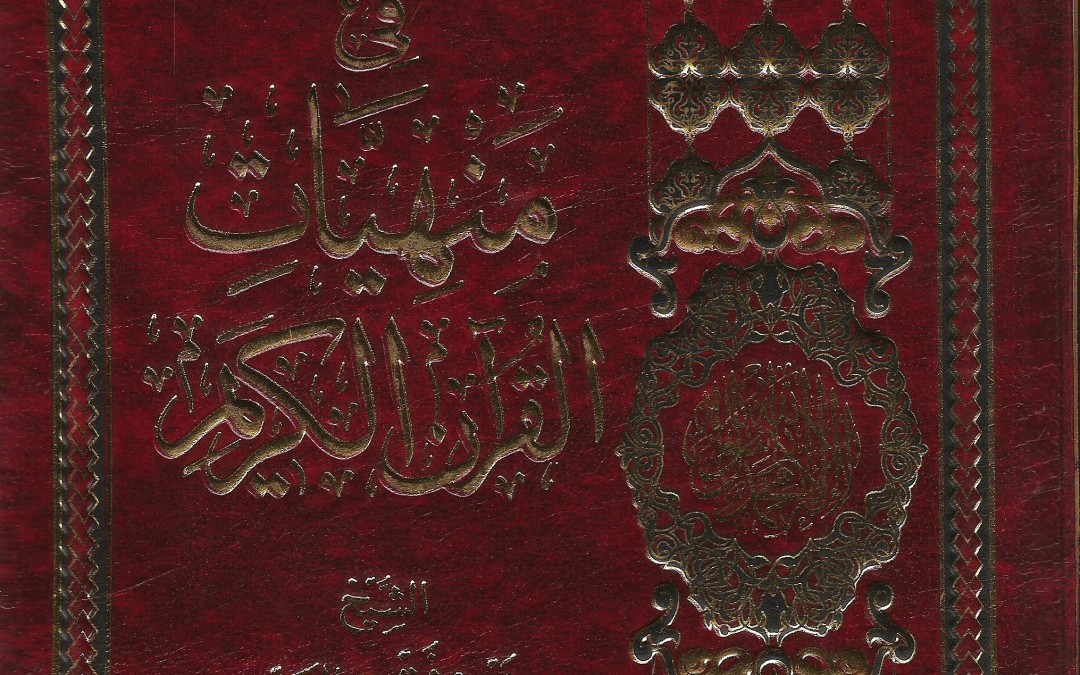 في
مَنْهِيَّاتِ
القُرآنِ الكَرِيمِ
الشَّيْخ